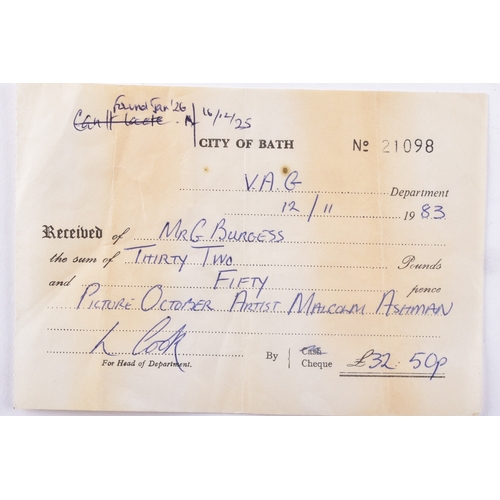 Found Jan '26
Can't locate 16/12/25
CITY OF BATH
No 21098
V.A.G Department
12/11 1983
Received of Mr G Burgess
the sum of Thirty Two Pounds
and Fifty pence
Picture October Artist Malcolm Ashman
L Cock
For Head of Department.
By Cash Cheque £32 50p